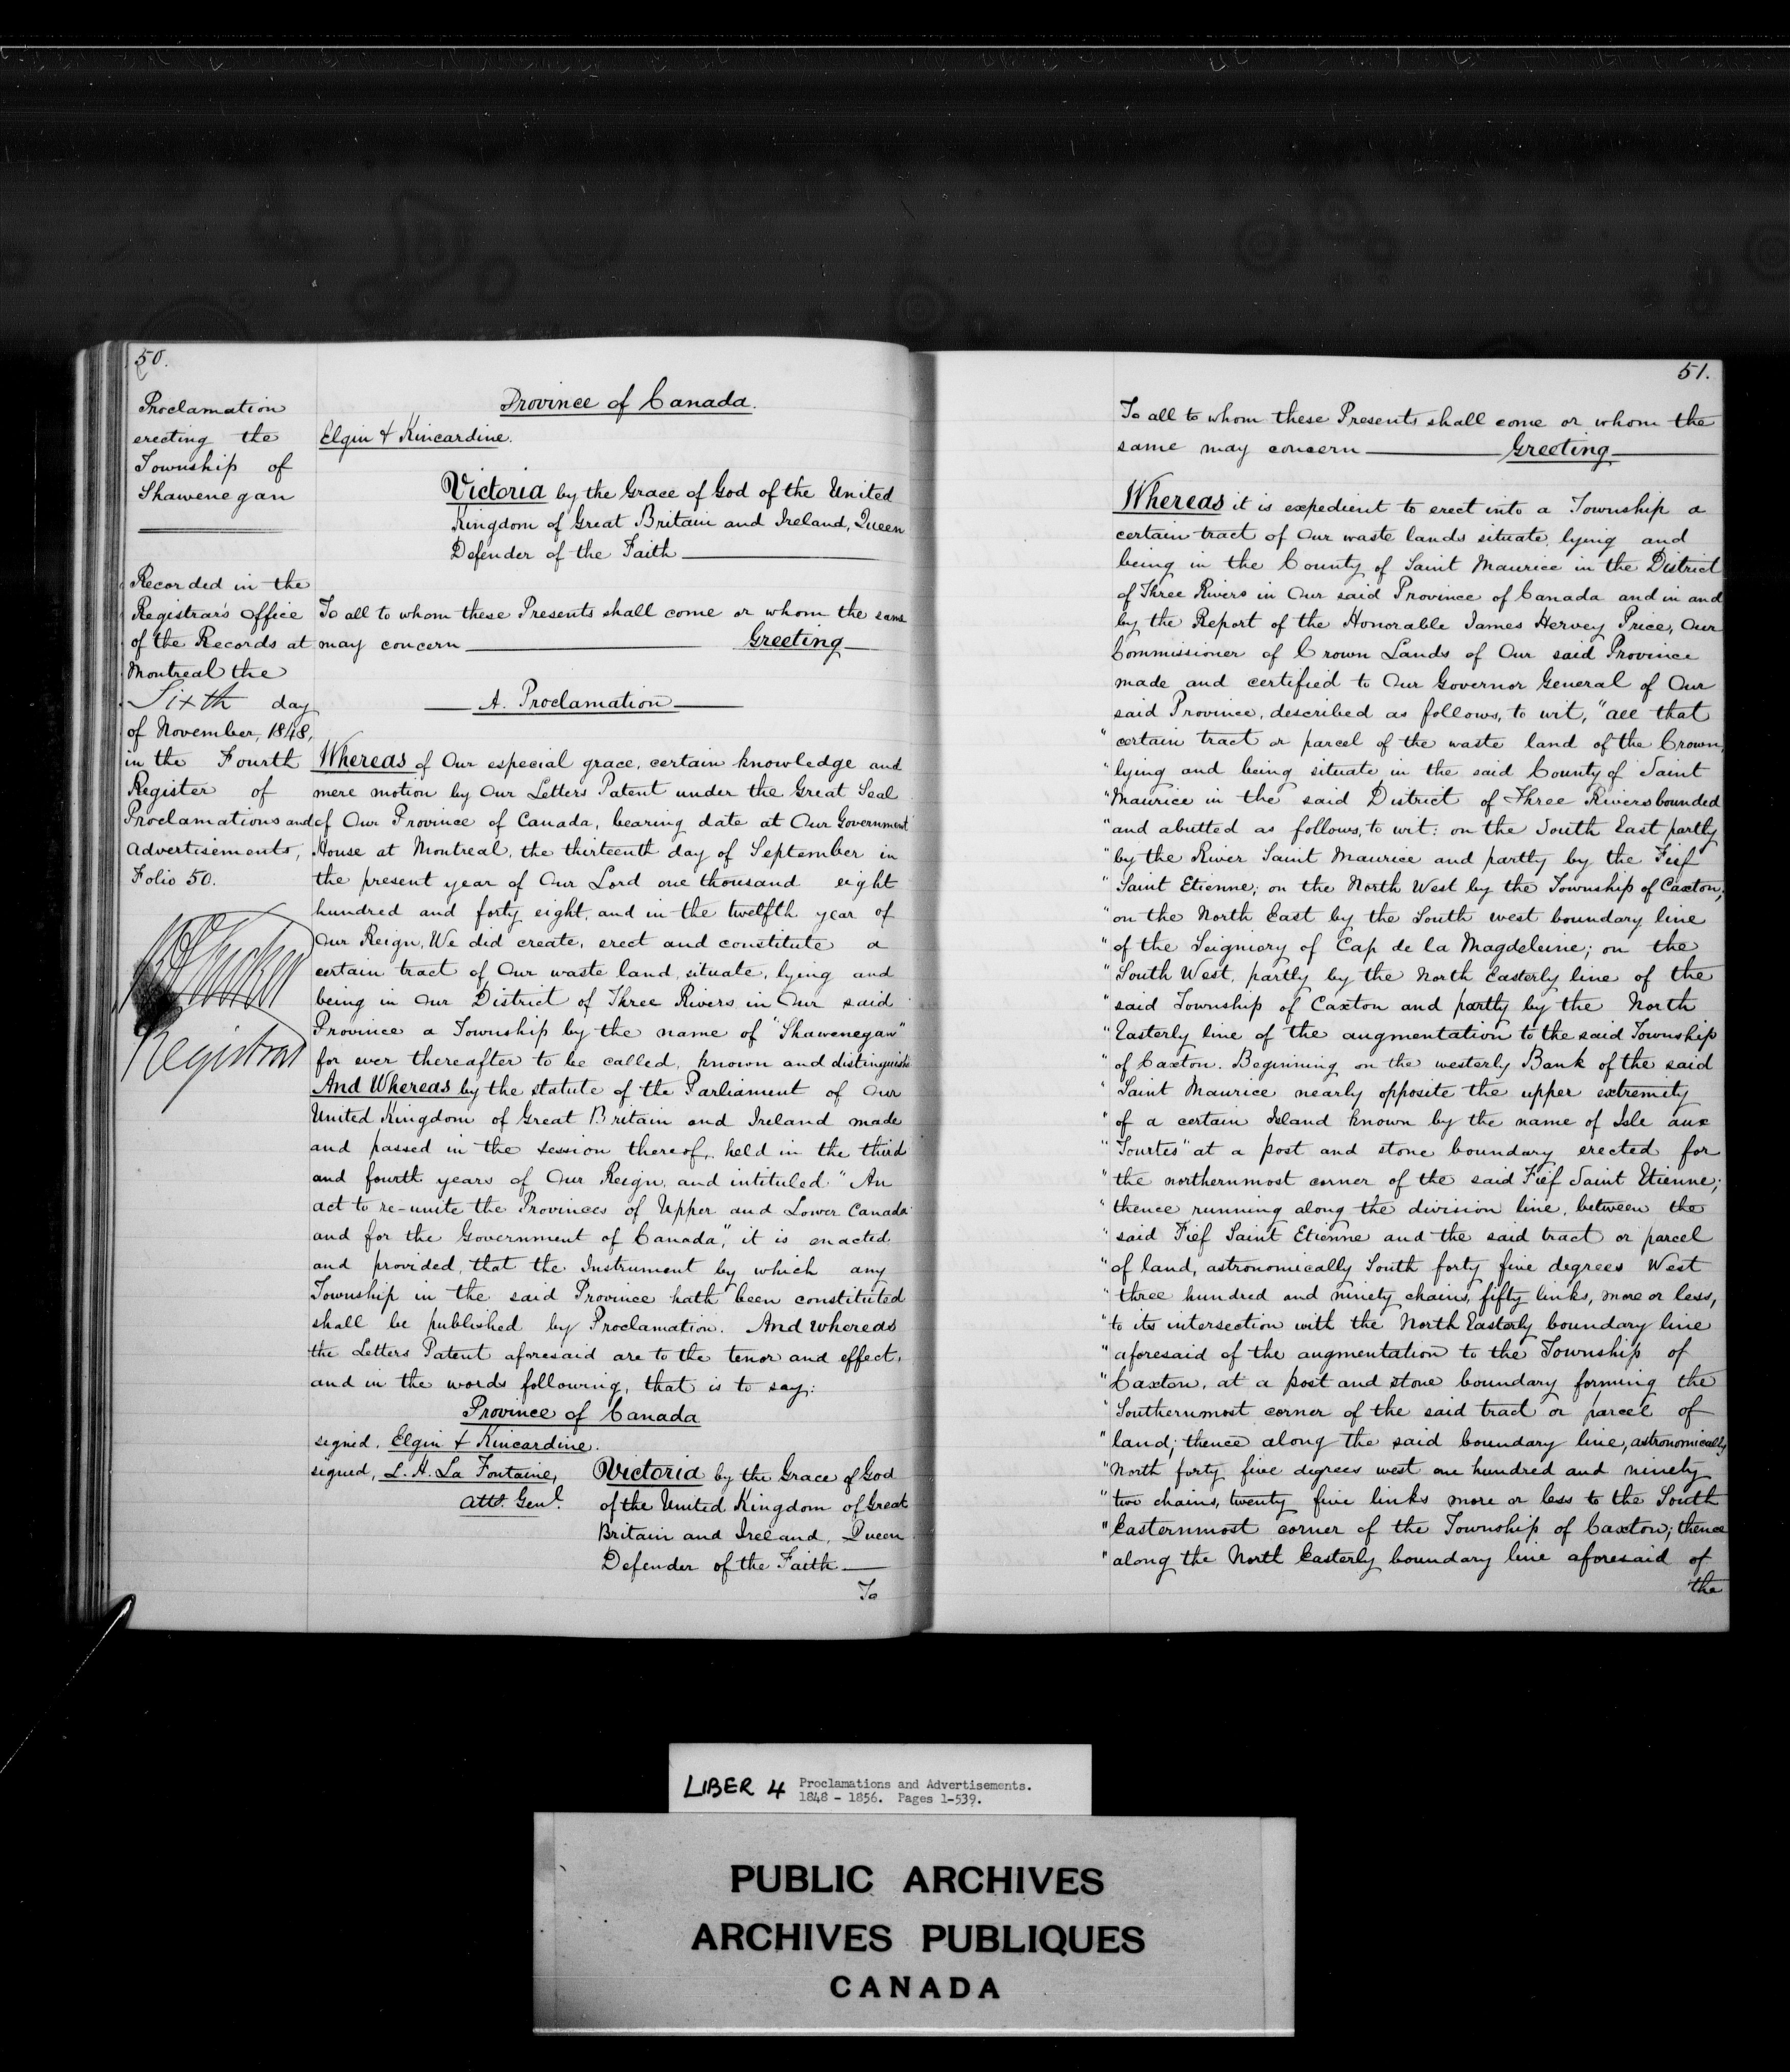 50.
Proclamation
erecting the
Township of
Shawenegan
Recorded in the
Registrar's Office
of the Records at
Montreal the
Sixth day
of November, 1848,
in the Fourth
Register of
Proclamations and
Advertisements,
Folio 50.
Registrar
Province of Canada.
Elgin & Kincardine.
Victoria by the Grace of God of the United
Kingdom of Great Britain and Ireland, Queen
Defender of the Faith
To all to whom these Presents shall come or whom the same
may concern Greeting
A. Proclamation
Whereas of Our especial grace, certain knowledge and
mere motion by Our Letters Patent under the Great Seal
of Our Province of Canada, bearing date at Our Government
House at Montreal, the thirteenth day of September in
the present year of Our Lord one thousand eight
hundred and forty eight, and in the twelfth year of
Our Reign, We did create, erect and constitute a
certain tract of Our waste land, situate, lying and
being in Our District of Three Rivers in Our said
Province a Township by the name of "Shawenegan"
for ever thereafter to be called, known and distinguish
And Whereas by the statute of the Parliament of Our
United Kingdom of Great Britain and Ireland made
and passed in the session thereof, held in the third
and fourth years of Our Reign, and intituled "An
act to re-unite the Provinces of Upper and Lower Canada
and for the Government of Canada", it is enacted
and provided, that the Instrument by which any
Township in the said Province hath been constituted
shall be published by Proclamation. And whereas
the Letters Patent aforesaid are to the tenor and effect,
and in the words following, that is to say:
Province of Canada
signed, Elgin & Kincardine.
signed, L. H. La Fontaine,
Atty. Genl.
Victoria by the Grace of God
of the United Kingdom of Great
Britain and Ireland, Queen
Defender of the Faith
To
51.
To all to whom these Presents shall come or whom the
same may concern Greeting
Whereas it is expedient to erect into a Township a
certain tract of Our waste lands situate, lying and
being in the County of Saint Maurice in the District
of Three Rivers in Our said Province of Canada and in and
by the Report of the Honorable James Hervey Price, Our
Commissioner of Crown Lands of Our said Province
made and certified to Our Governor General of Our
said Province, described as follows, to wit, "all that
"certain tract or parcel of the waste land of the Crown,
"lying and being situate in the said County of Saint
"Maurice in the said District of Three Rivers bounded
"and abutted as follows, to wit: on the South East partly
"by the River Saint Maurice and partly by the Fief
"Saint Etienne; on the North West by the Township of Caxton;
"on the North East by the South west boundary line
"of the Seigniory of Cap de la Magdeleine; on the
"South West, partly by the North Easterly line of the
"said Township of Caxton and partly by the North
"Easterly line of the augmentation to the said Township
"of Caxton. Beginning on the westerly Bank of the said
"Saint Maurice nearly opposite the upper extremity
"of a certain Island known by the name of Isle aux
"Tourtes" at a post and stone boundary erected for
"the northernmost corner of the said Fief Saint Etienne;
"thence running along the division line, between the
"said Fief Saint Etienne and the said tract or parcel
"of land, astronomically South forty five degrees West
"three hundred and ninety chains, fifty links, more or less,
"to its intersection with the North Easterly boundary line
"aforesaid of the augmentation to the Township of
"Caxton, at a post and stone boundary forming the
"Southernmost corner of the said tract or parcel of
"land; thence along the said boundary line, astronomically
"North forty five degrees west one hundred and ninety
"two chains, twenty five links more or less to the South
"Easternmost corner of the Township of Caxton; thence
"along the North Easterly boundary line aforesaid of
the
LIBER 4 Proclamations and Advertisements.
1848 - 1856. Pages 1-539.
PUBLIC ARCHIVES
ARCHIVES PUBLIQUES
CANADA